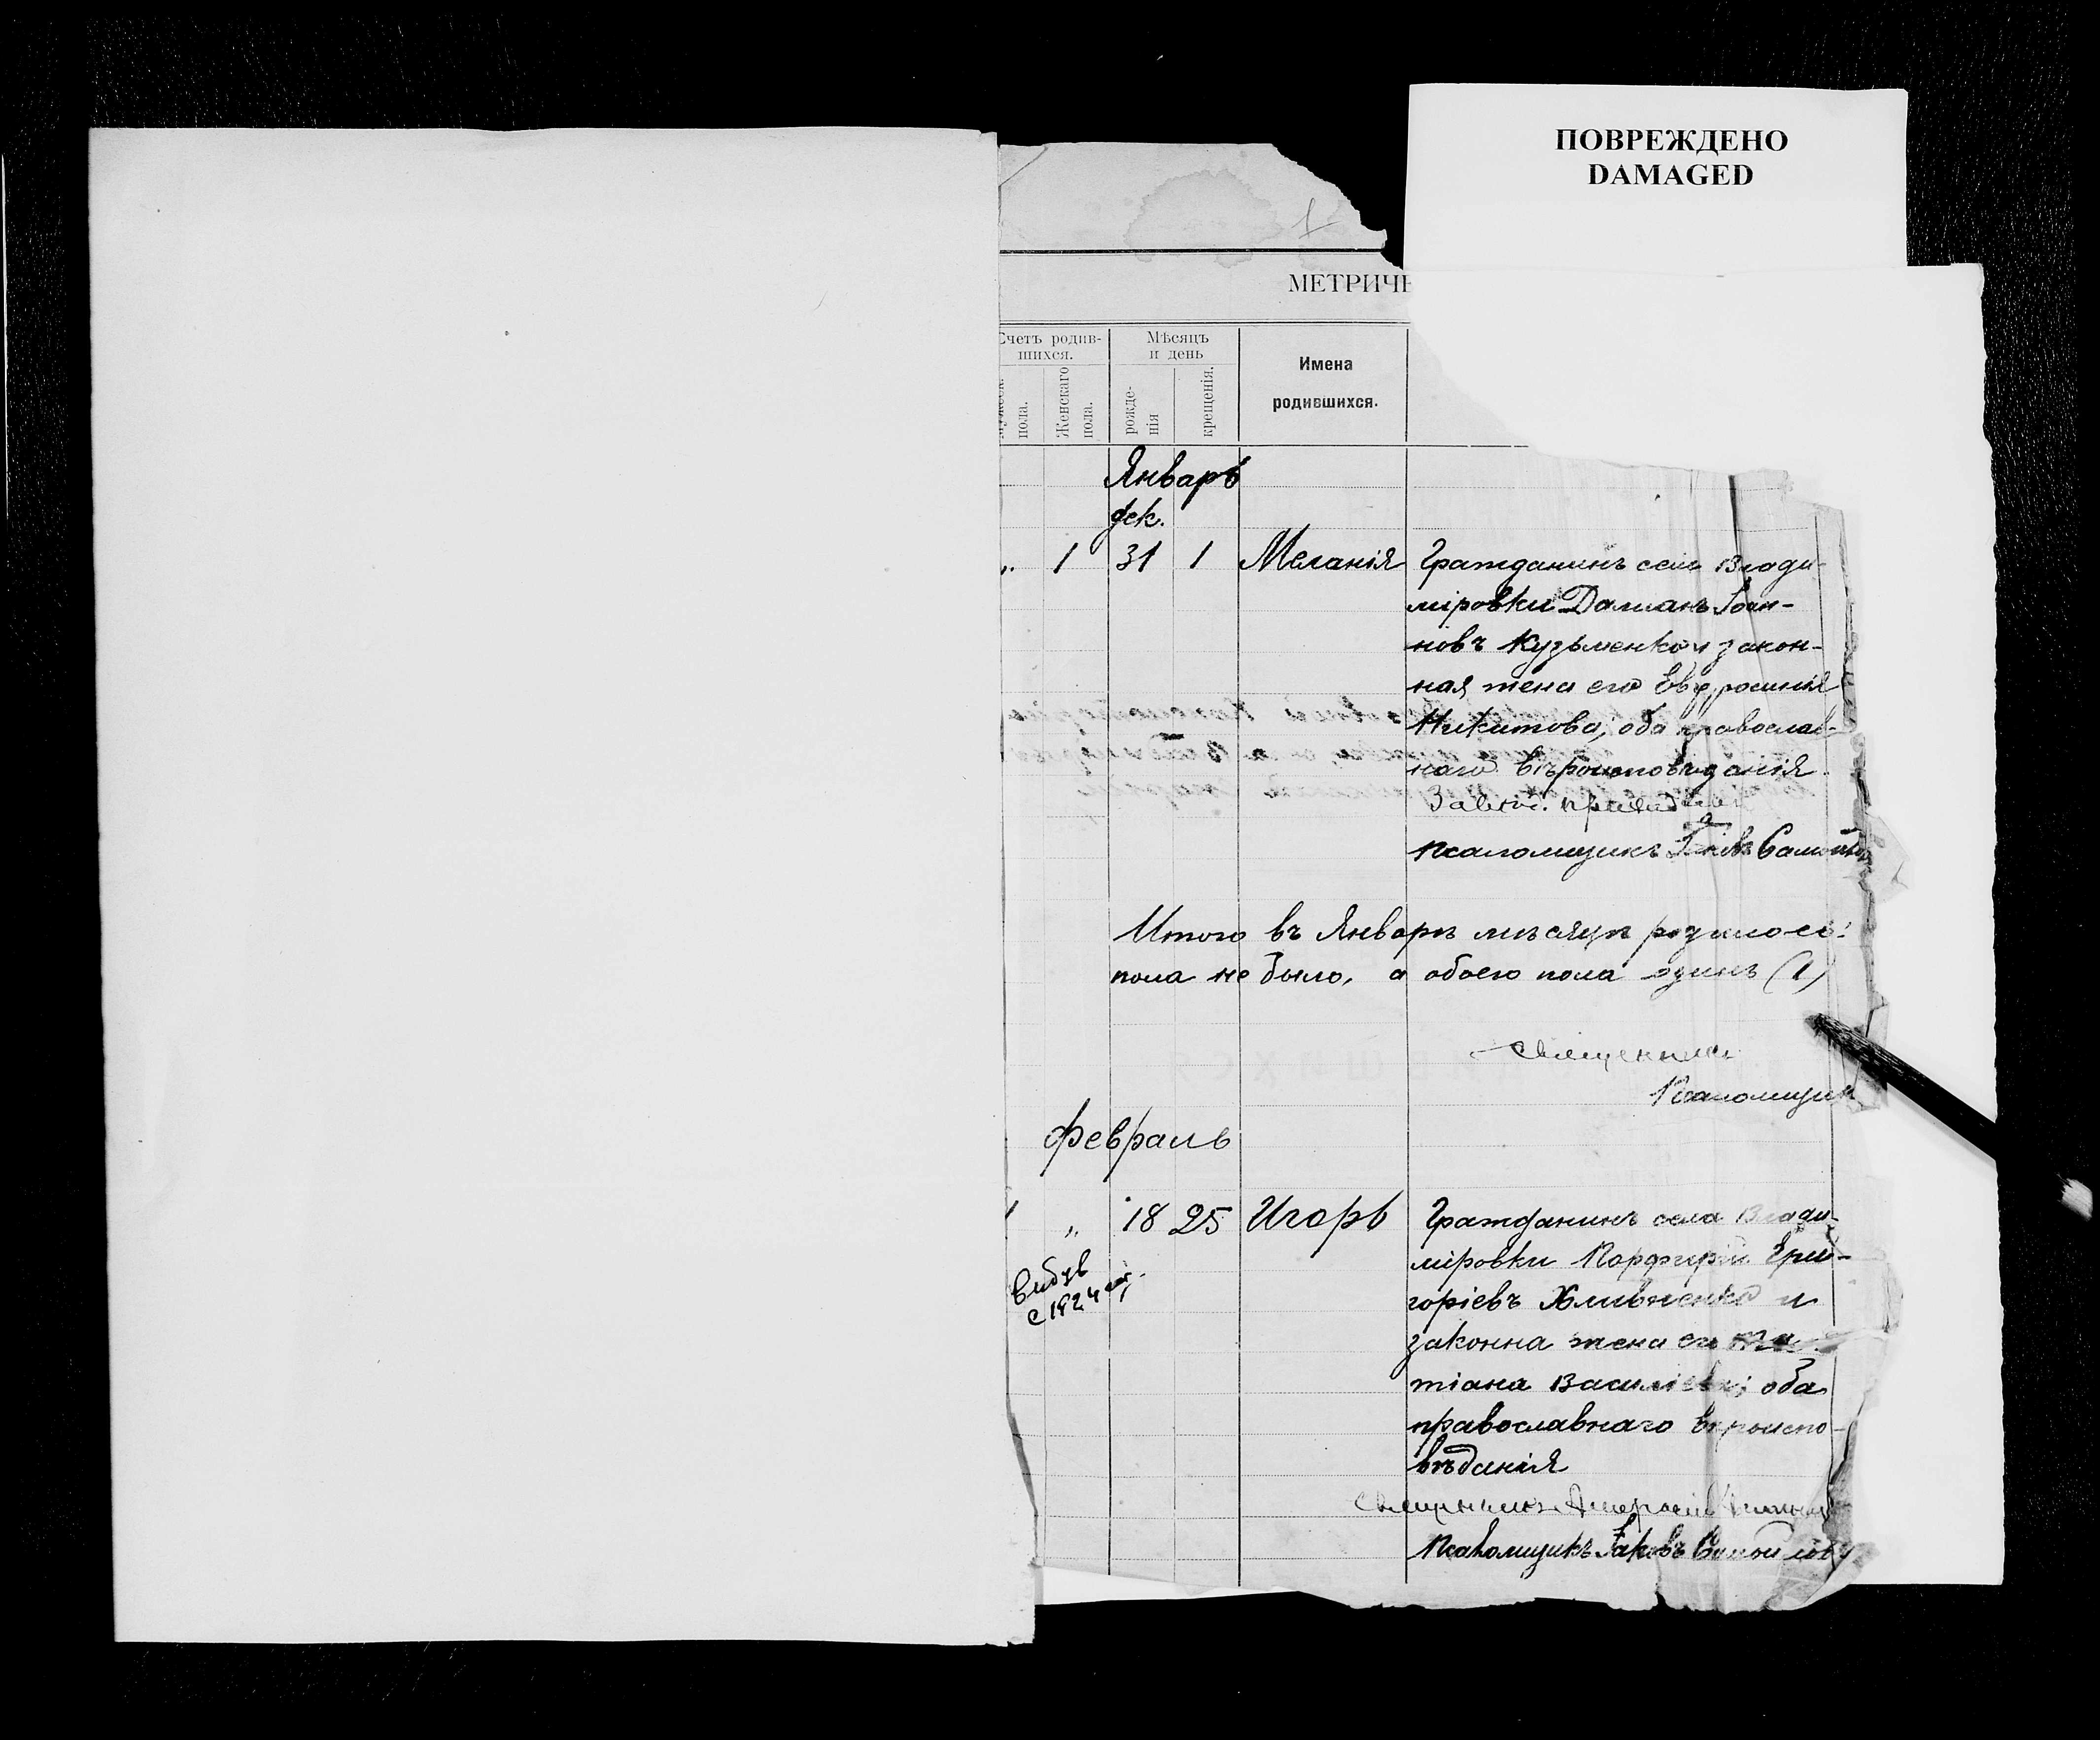 ПОВРЕЖДЕНО
DAMAGED
1
МЕТРИЧЕ
Счетъ родив-
шихся.
Мѣсяцъ
и день
Имена
родившихся.
пола.
Женскаго
пола.
рожде-
нія
крещенія.
Январь
дек.
„ 1 31 1 Меланія Гражданинъ села Влади-
міровки Даміанъ Іоан-
новъ Кузьменко и закон-
ная жена его Евфросинія
Никитова, оба православ-
наго вѣроисповѣданія.
Псаломщикъ
Итого въ Январѣ мѣсяцѣ родилось:
пола не было, а обоего пола одинъ (1)
Священникъ
Псаломщик
Февраль
1 „ 18 25 Игорь Гражданинъ села Влади-
міровки Порфирій Гри-
горіевъ и
законна жена его Та-
тіана Василіева; оба
православнаго вѣроиспо-
вѣданія
вибув
с 1924
Священникъ
Псаломщикъ Іаковъ Самойлов